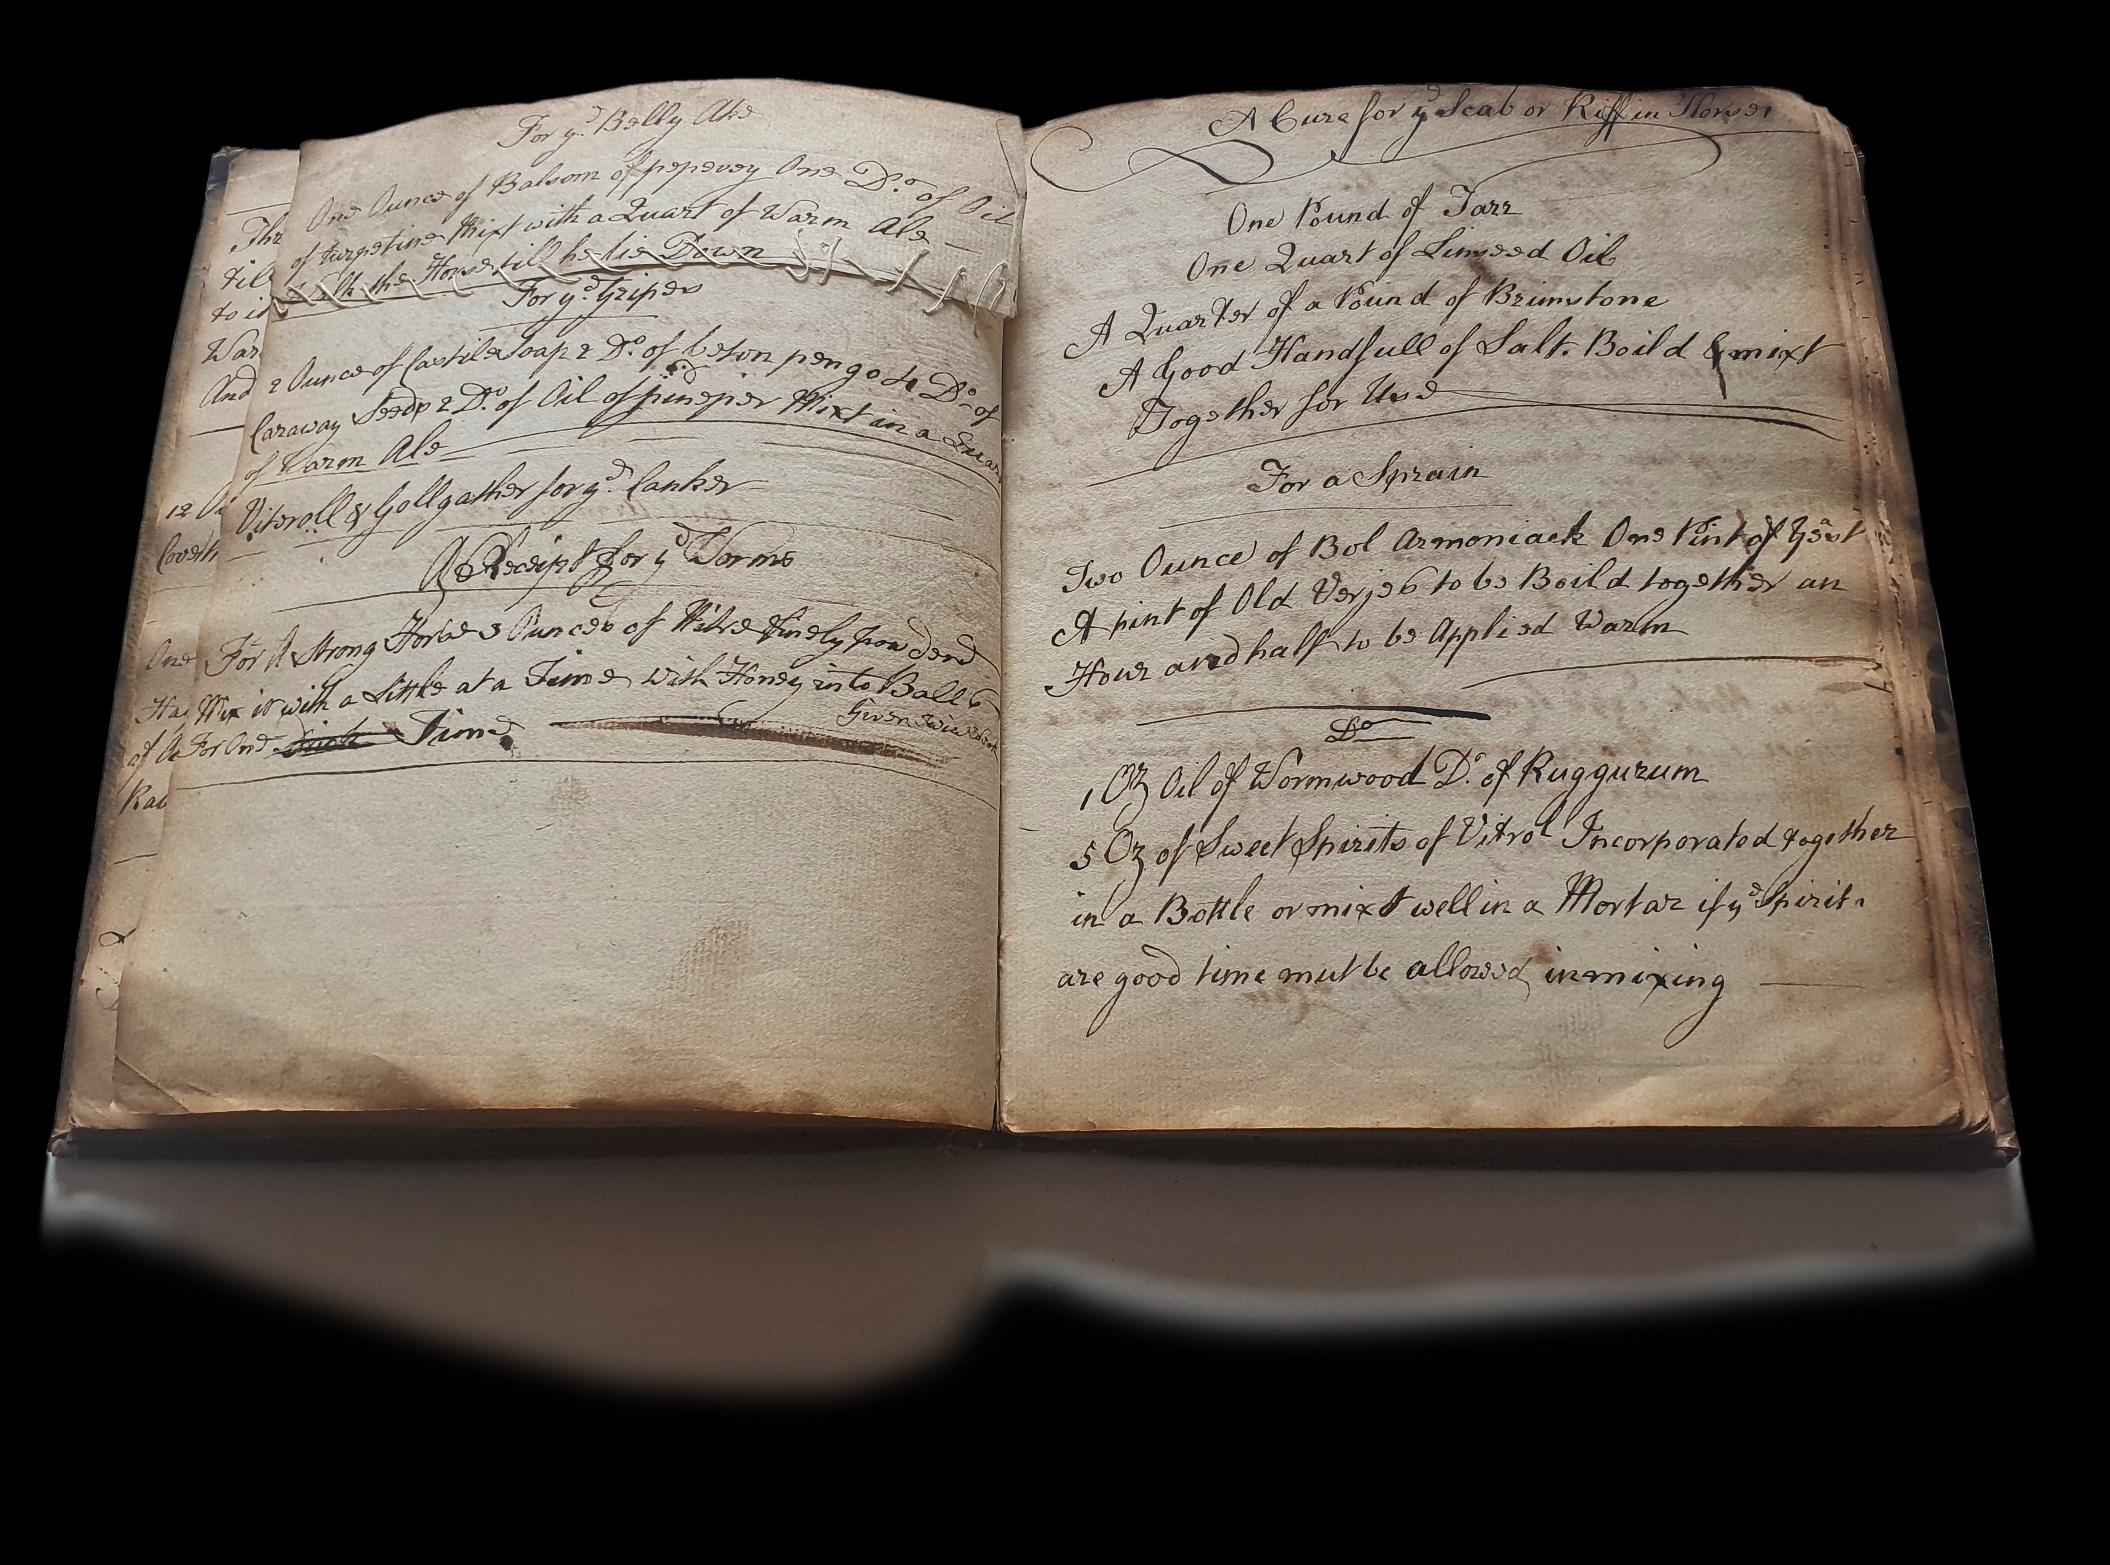 For yᵉ Belly Ake
One Ounce of Balsom of pepevey One Dº of Oil
of turpetine Mixt with a Quart of Warm Ale
the Horse till he lie Down
For yᵉ Gripes
2 Ounce of Castile Soap 2 Dº of 4 Dº of
Caraway Seeds 2 Dº of Oil of junepier Mixt in a Quar
of Warm Ale
Viteroll & Gollgather for yᵉ Canker
A Receipt for yᵉ Worms
For A Strong Horse 3 Ounces of Nitre finely powderd
Mix it with a Little at a Time with Honey into Balls
Given
For One Time
Thr
til
to i
War
And
12
One
Ha
of
A Cure for yᵉ Scab or Riff in Horses
One Pound of Tarr
One Quart of Linseed Oil
A Quarter of a Pound of Brimstone
A Good Handfull of Salt. Boild & mixt
Together for Use
For a Sprain
Two Ounce of Bol Armoniack One Pint of Yest
A pint of Old Verjes to be Boild together an
Hour and half to be Applied Warm
Dº
1 Oz Oil of Wormwood Dº of Ruggurum
5 Oz of Sweet Spirits of Vitrol Incorporated together
in a Bottle or mixt well in a Mortar if yᵉ Spirits
are good time mut be allowed in mixing